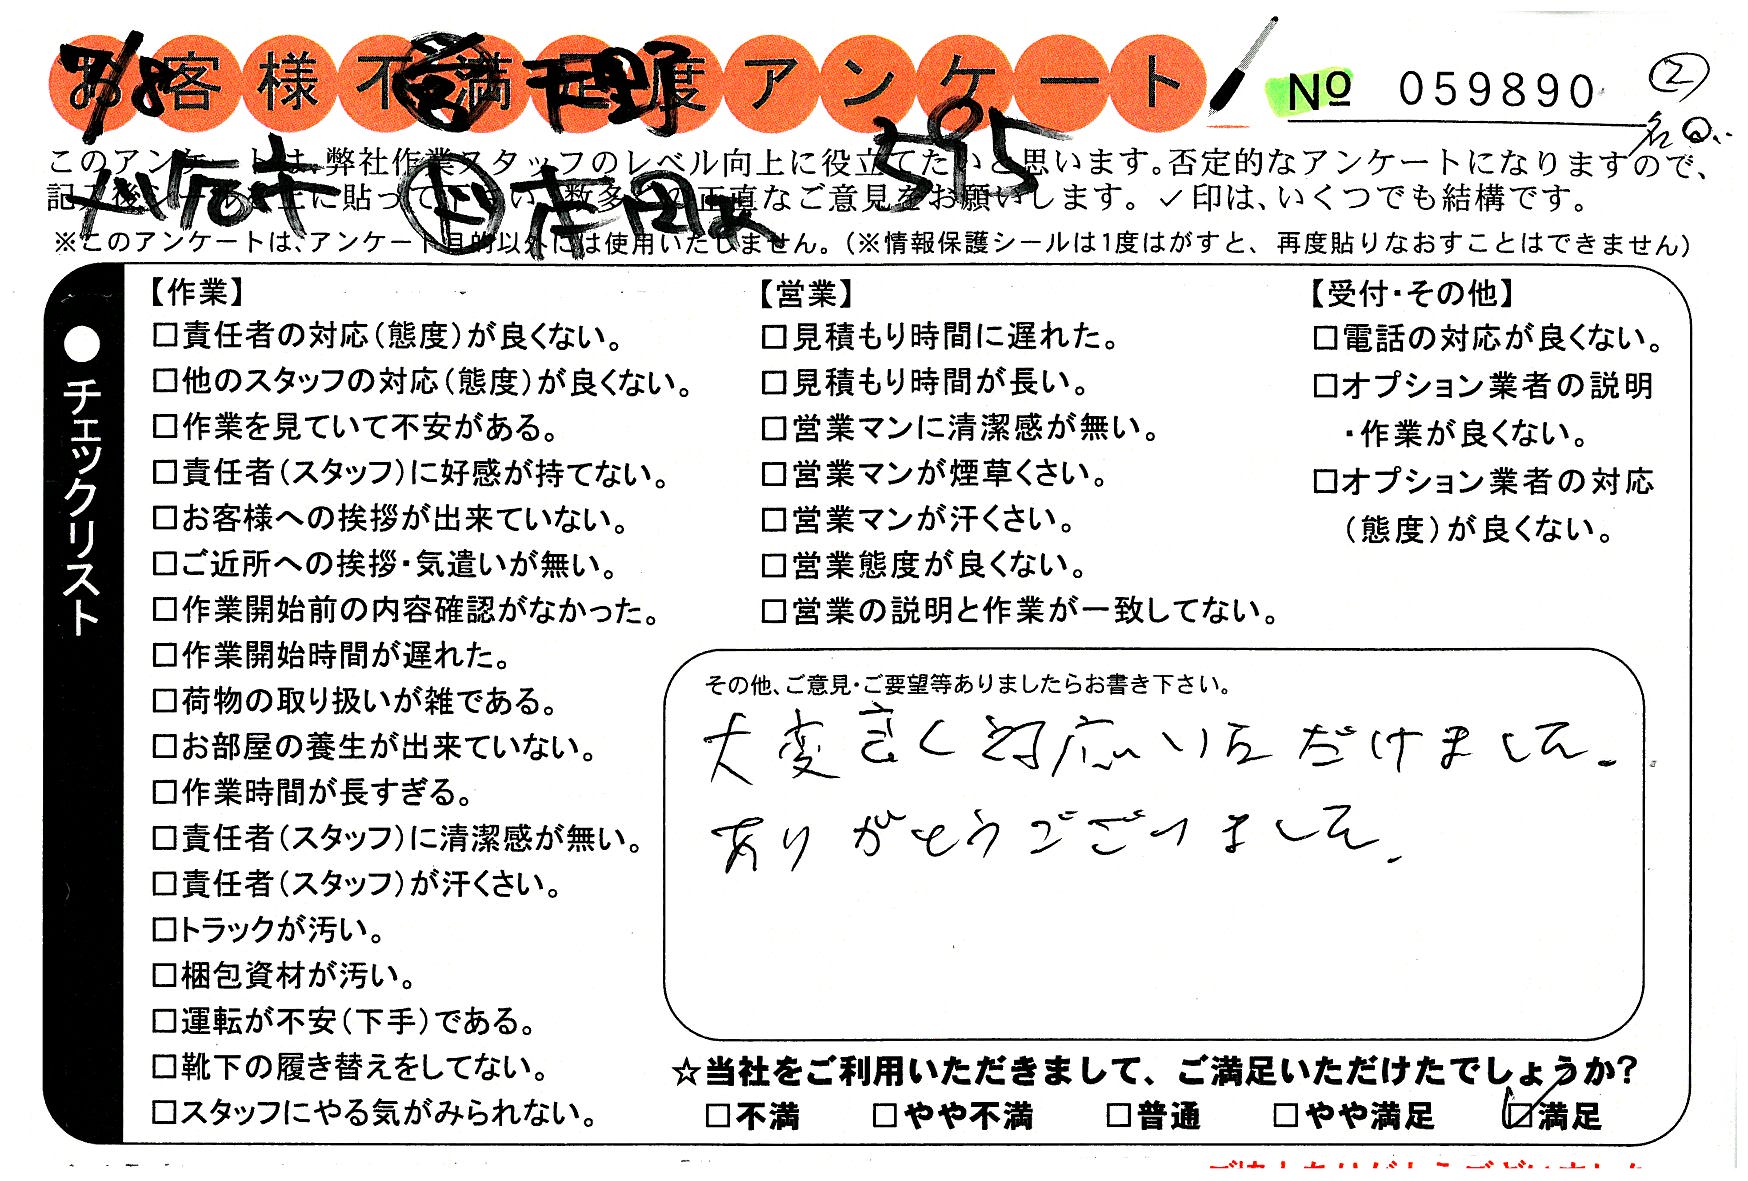 お客様不満足度アンケート
7/8 営 下野 595
№ 059890 ②
このアンケートは、弊社作業スタッフのレベル向上に役立てたいと思います。否定的なアンケートになりますので、
記入後シールを上に貼って下さい。数多くの正直なご意見をお願いします。✓印は、いくつでも結構です。
※このアンケートは、アンケート目的以外には使用いたしません。(※情報保護シールは1度はがすと、再度貼りなおすことはできません)
●チェックリスト
【作業】
□責任者の対応(態度)が良くない。
□他のスタッフの対応(態度)が良くない。
□作業を見ていて不安がある。
□責任者(スタッフ)に好感が持てない。
□お客様への挨拶が出来ていない。
□ご近所への挨拶・気遣いが無い。
□作業開始前の内容確認がなかった。
□作業開始時間が遅れた。
□荷物の取り扱いが雑である。
□お部屋の養生が出来ていない。
□作業時間が長すぎる。
□責任者(スタッフ)に清潔感が無い。
□責任者(スタッフ)が汗くさい。
□トラックが汚い。
□梱包資材が汚い。
□運転が不安(下手)である。
□靴下の履き替えをしてない。
□スタッフにやる気がみられない。
【営業】
□見積もり時間に遅れた。
□見積もり時間が長い。
□営業マンに清潔感が無い。
□営業マンが煙草くさい。
□営業マンが汗くさい。
□営業態度が良くない。
□営業の説明と作業が一致してない。
【受付・その他】
□電話の対応が良くない。
□オプション業者の説明
・作業が良くない。
□オプション業者の対応
(態度)が良くない。
その他、ご意見・ご要望等ありましたらお書き下さい。
大変良く対応いただけました。
ありがとうございました。
☆当社をご利用いただきまして、ご満足いただけたでしょうか?
□不満 □やや不満 □普通 □やや満足 ☑満足